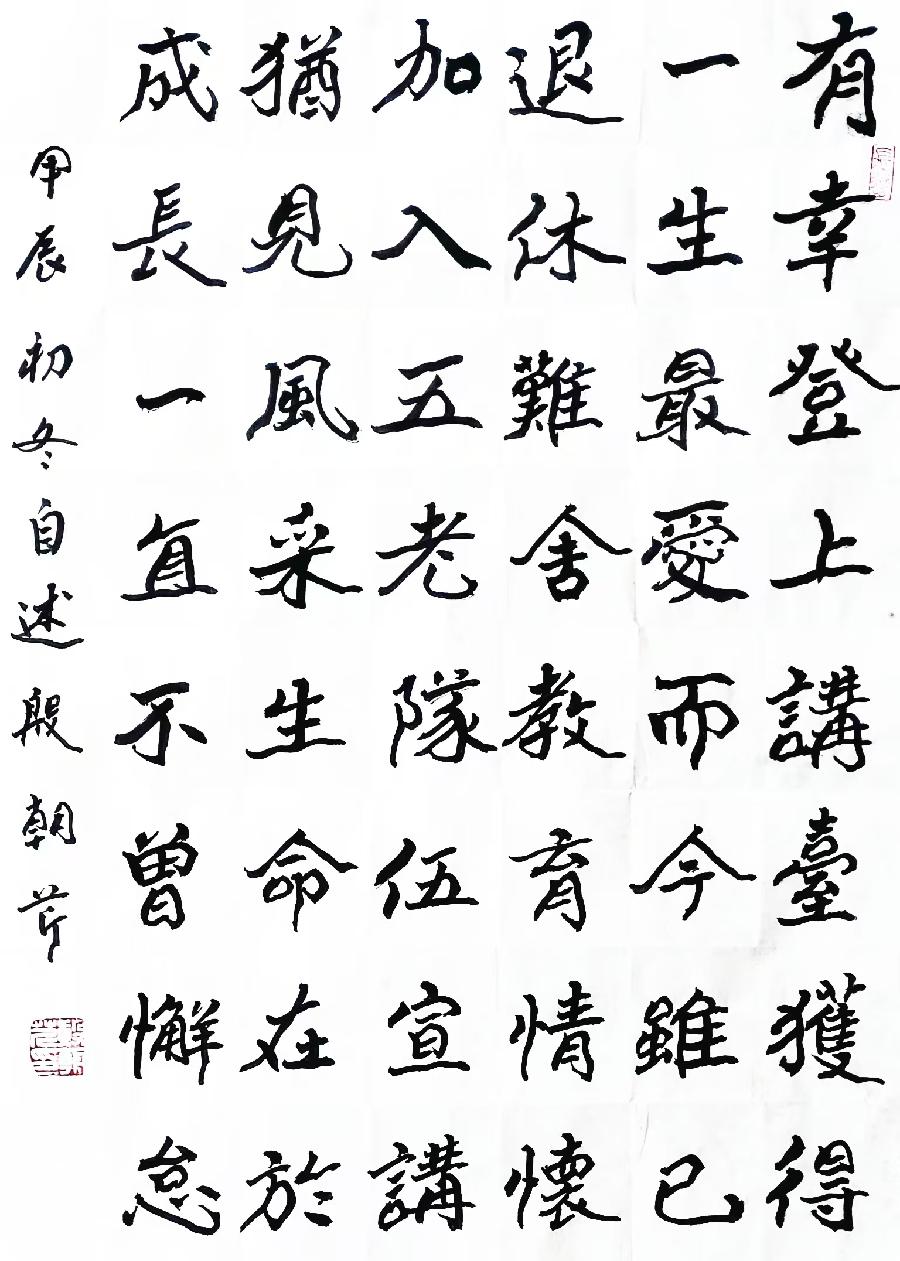 有幸登上講臺獲得
一生最愛而今雖已
退休難舍教育情懷
加入五老隊伍宣講
猶見風采生命在於
成長一直不曾懈怠
甲辰初冬自述殷朝芹